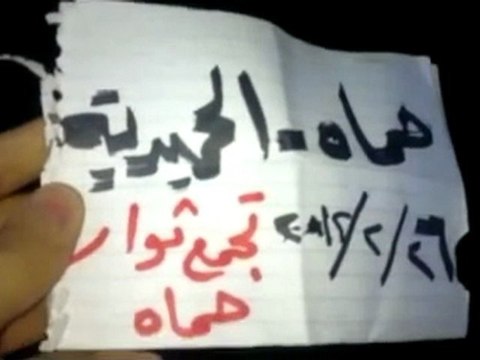 حماه - الحميدية
٢٠١٢/٢/٢٦
تجمع ثوار
حماه